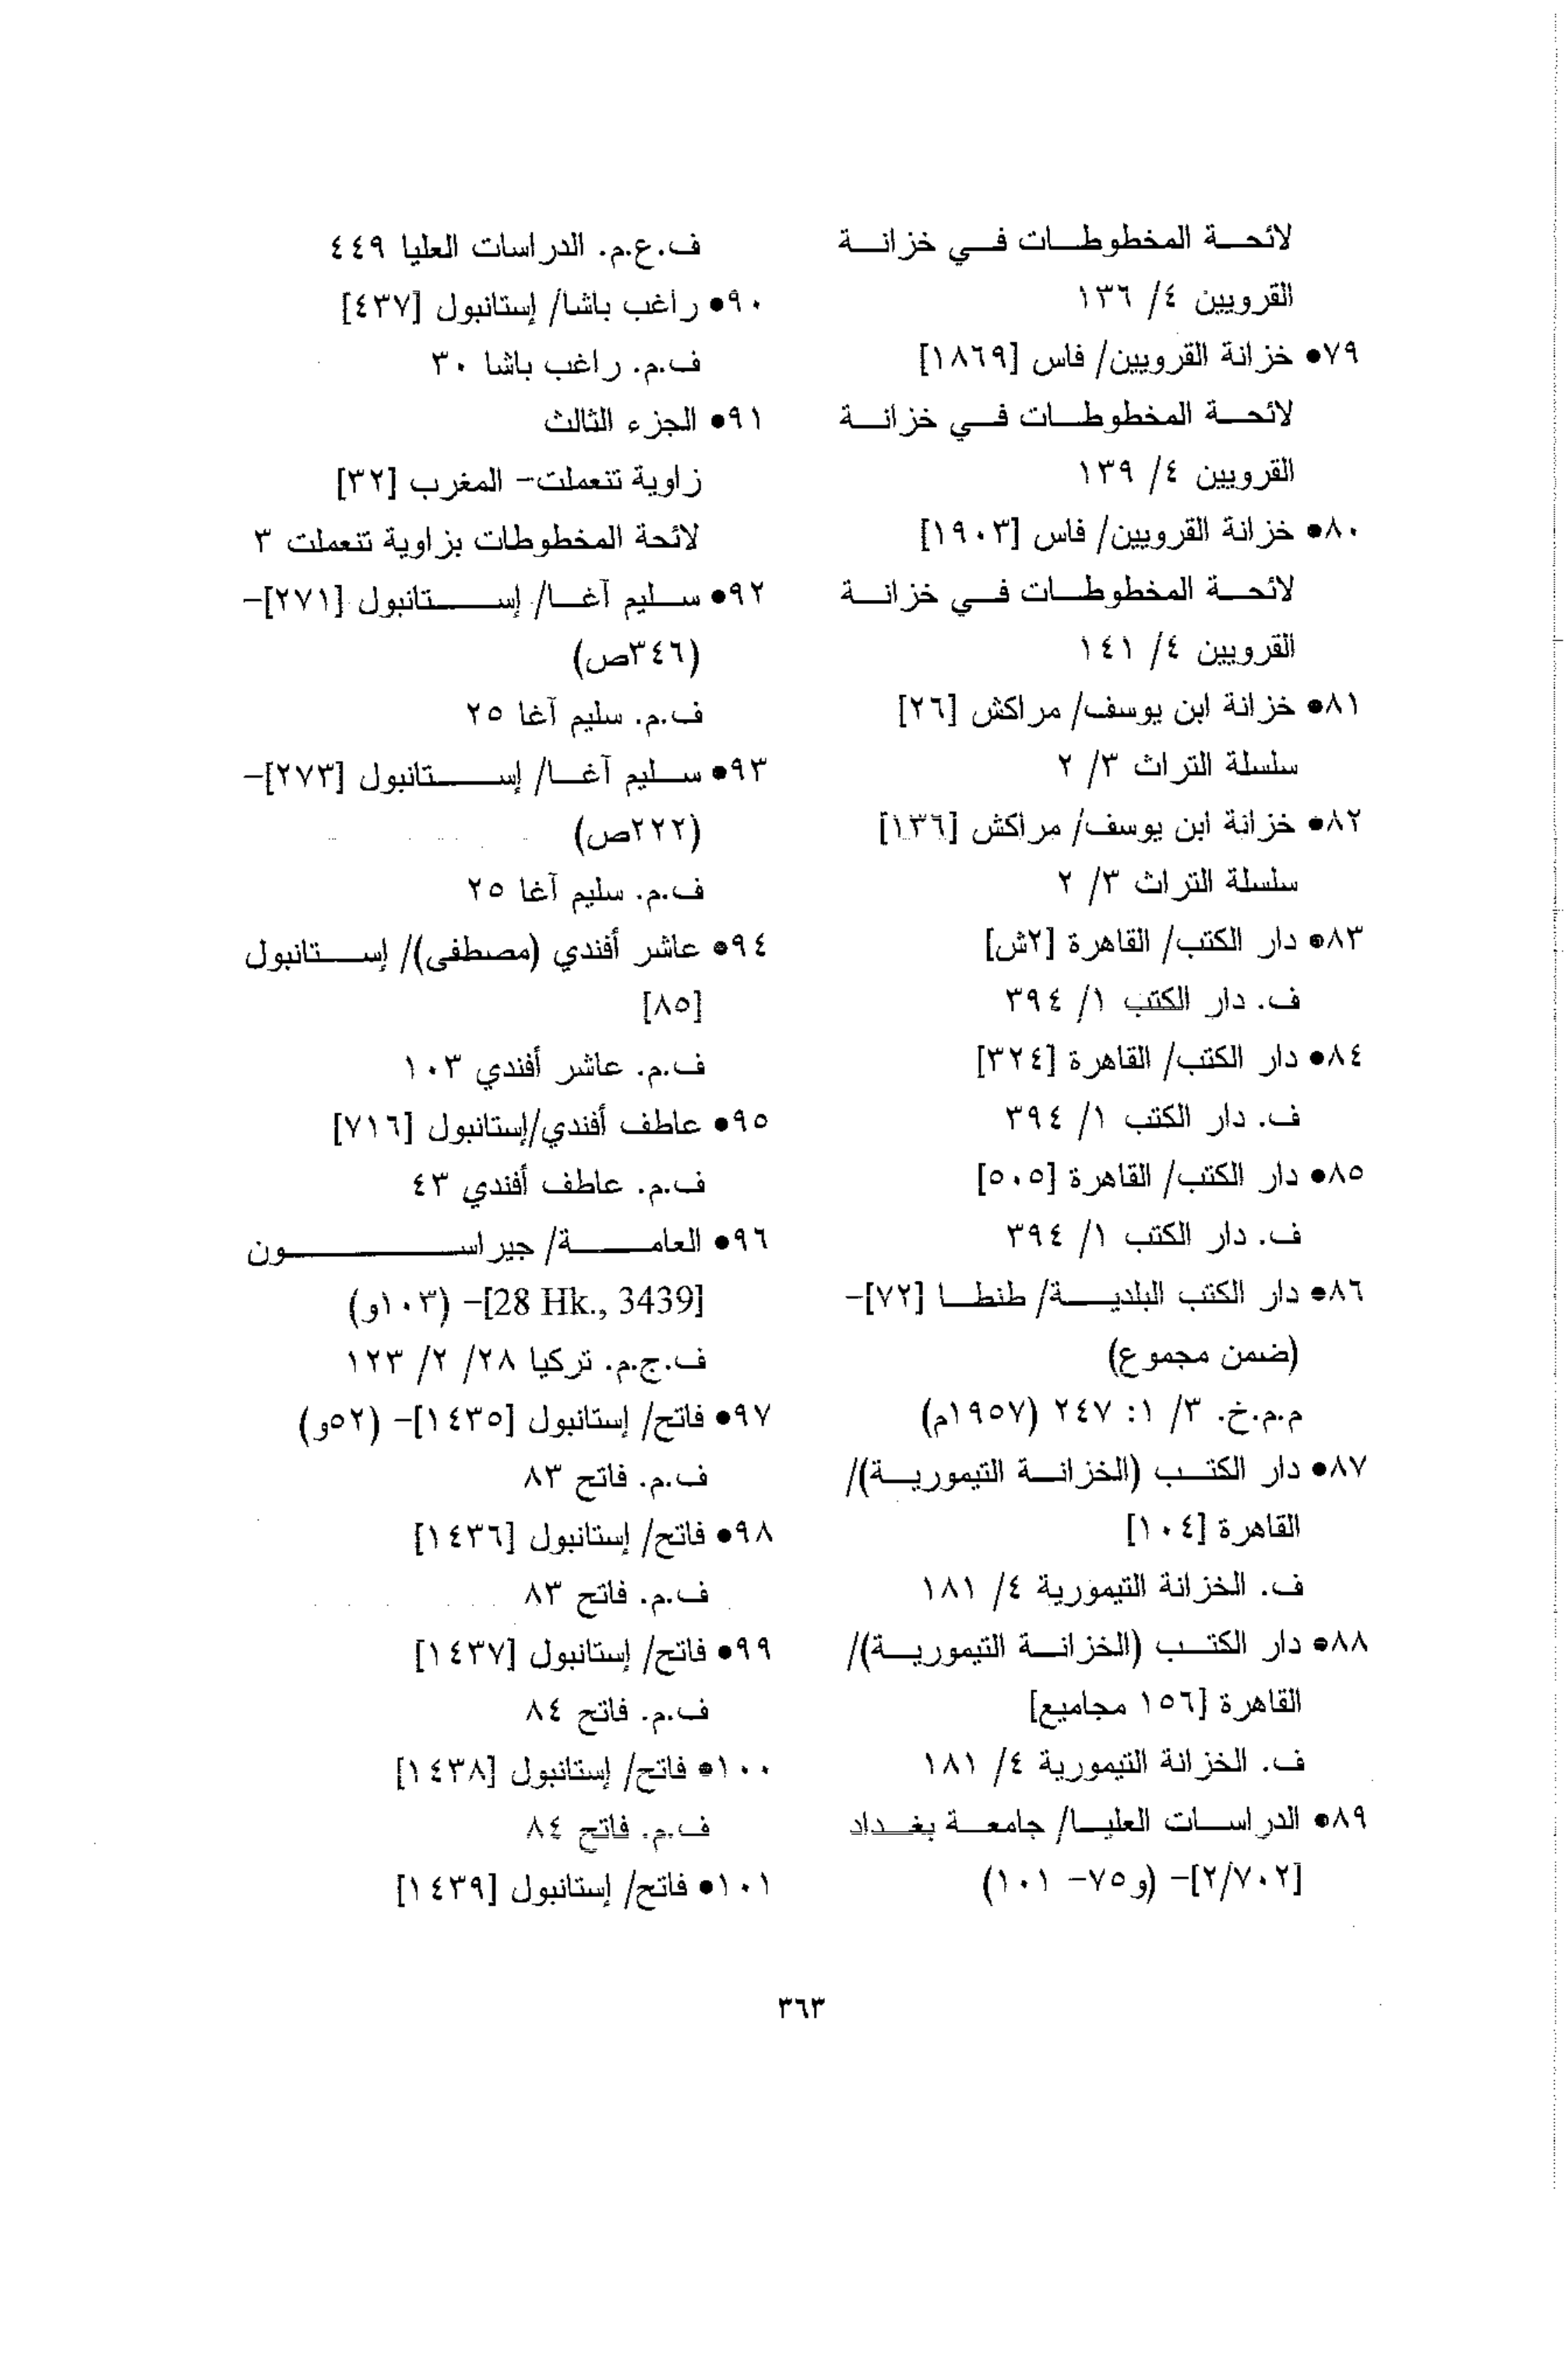 لائحة المخطوطات في خزانة
القرويين ٤/ ١٣٦
٧٩• خزانة القرويين/ فاس [١٨٦٩]
لائحة المخطوطات في خزانة
القرويين ٤/ ١٣٩
٨٠• خزانة القرويين/ فاس [١٩٠٣]
لائحة المخطوطات في خزانة
القرويين ٤/ ١٤١
٨١• خزانة ابن يوسف/ مراكش [٢٦]
سلسلة التراث ٣/ ٢
٨٢• خزانة ابن يوسف/ مراكش [١٣٦]
سلسلة التراث ٣/ ٢
٨٣• دار الكتب/ القاهرة [٢ش]
ف. دار الكتب ١/ ٣٩٤
٨٤• دار الكتب/ القاهرة [٣٢٤]
ف. دار الكتب ١/ ٣٩٤
٨٥• دار الكتب/ القاهرة [٥٠٥]
ف. دار الكتب ١/ ٣٩٤
٨٦• دار الكتب البلدية/ طنطا [٧٢]–
(ضمن مجموع)
م.م.خ. ٣/ ١: ٢٤٧ (١٩٥٧م)
٨٧• دار الكتب (الخزانة التيمورية)/
القاهرة [١٠٤]
ف. الخزانة التيمورية ٤/ ١٨١
٨٨• دار الكتب (الخزانة التيمورية)/
القاهرة [١٥٦ مجاميع]
ف. الخزانة التيمورية ٤/ ١٨١
٨٩• الدراسات العليا/ جامعة بغداد
[٢/٧٠٢]– (و٧٥– ١٠١)
ف.ع.م. الدراسات العليا ٤٤٩
٩٠• راغب باشا/ إستانبول [٤٣٧]
ف.م. راغب باشا ٣٠
٩١• الجزء الثالث
زاوية تنعملت– المغرب [٣٢]
لائحة المخطوطات بزاوية تنعملت ٣
٩٢• سليم آغا/ إستانبول [٢٧١]–
(٣٤٦ص)
ف.م. سليم آغا ٢٥
٩٣• سليم آغا/ إستانبول [٢٧٣]–
(٢٢٢ص)
ف.م. سليم آغا ٢٥
٩٤• عاشر أفندي (مصطفى)/ إستانبول
[٨٥]
ف.م. عاشر أفندي ١٠٣
٩٥• عاطف أفندي/إستانبول [٧١٦]
ف.م. عاطف أفندي ٤٣
٩٦• العامة/ جيراسون
[28 Hk., 3439]– (١٠٣و)
ف.ج.م. تركيا ٢٨/ ٢/ ١٢٣
٩٧• فاتح/ إستانبول [١٤٣٥]– (٥٢و)
ف.م. فاتح ٨٣
٩٨• فاتح/ إستانبول [١٤٣٦]
ف.م. فاتح ٨٣
٩٩• فاتح/ إستانبول [١٤٣٧]
ف.م. فاتح ٨٤
١٠٠• فاتح/ إستانبول [١٤٣٨]
ف.م. فاتح ٨٤
١٠١• فاتح/ إستانبول [١٤٣٩]
٣٦٣